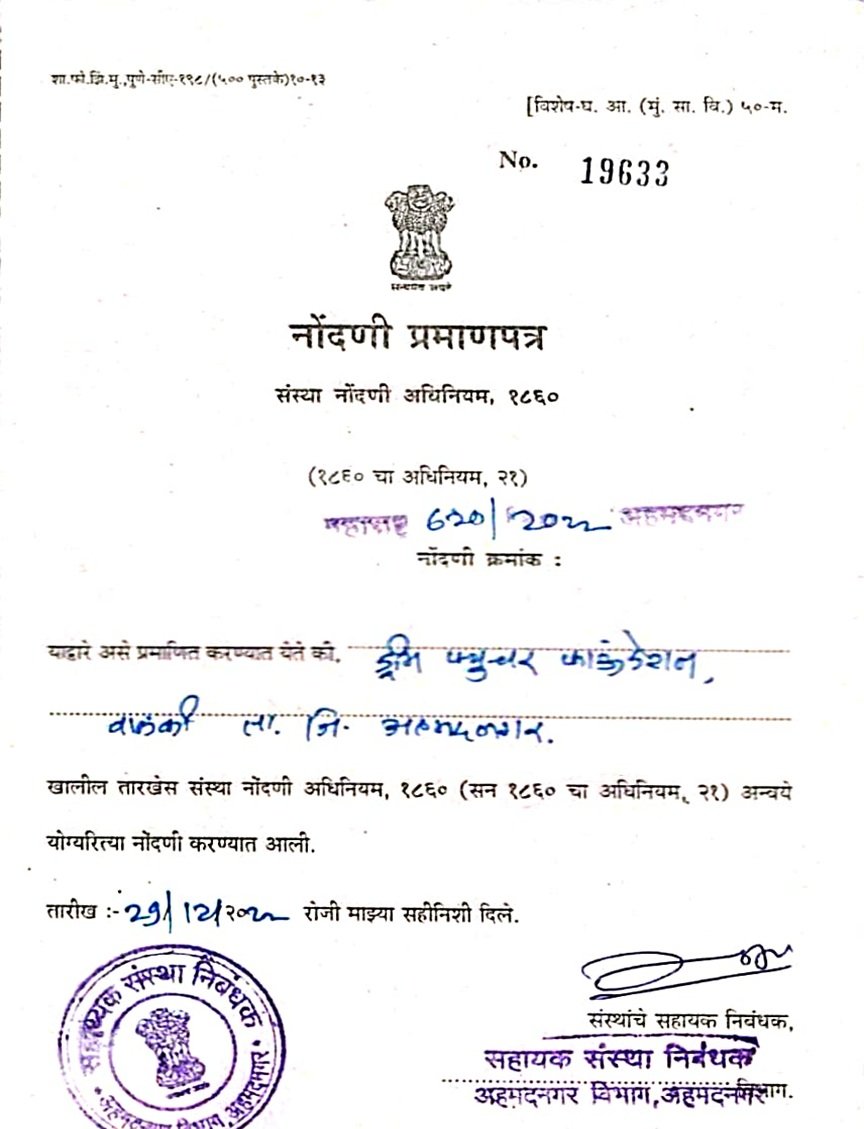 शा.फो.झिं.मु.,पुणे-सीए-१९८/(५०० पुस्तके)१०-१३
[विशेष-घ. आ. (मुं. सा. वि.) ५०-म.
No. 19633
सत्यमेव जयते
नोंदणी प्रमाणपत्र
संस्था नोंदणी अधिनियम, १८६०
(१८६० चा अधिनियम, २१)
महाराष्ट्र /२०२२ अहमदनगर
नोंदणी क्रमांक :
याद्वारे असे प्रमाणित करण्यात येते की, ड्रीम फ्युचर फाऊंडेशन,
वाळकी ता. जि. अहमदनगर.
खालील तारखेस संस्था नोंदणी अधिनियम, १८६० (सन १८६० चा अधिनियम, २१) अन्वये
योग्यरित्या नोंदणी करण्यात आली.
तारीख :- 29/12/२०२२ रोजी माझ्या सहीनिशी दिले.
संस्थांचे सहायक निबंधक,
सहायक संस्था निबंधक
अहमदनगर विभाग,अहमदनगर विभाग.
सहाय्यक संस्था निबंधक
अहमदनगर विभाग, अहमदनगर